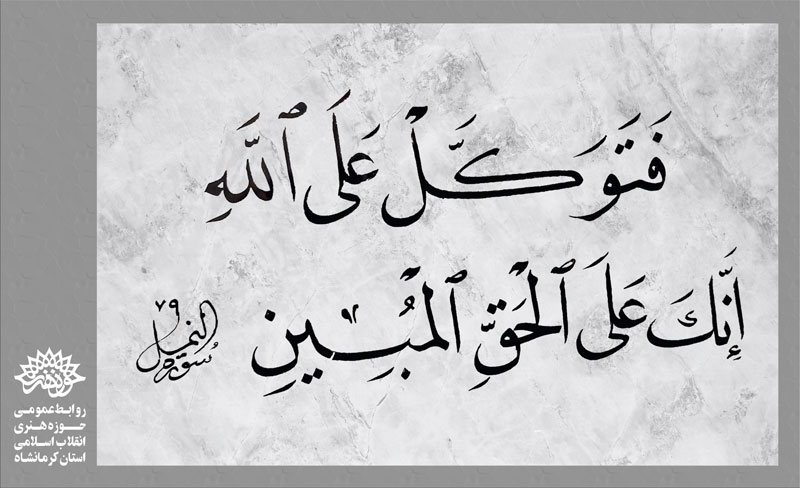 فَتَوَكَّلْ عَلَى ٱللَّهِ
إِنَّكَ عَلَى ٱلْحَقِّ ٱلْمُبِينِ
سوره النمل ۷۹
حوزه هنری
روابط عمومی
حوزه هنری
انقلاب اسلامی
استان کرمانشاه